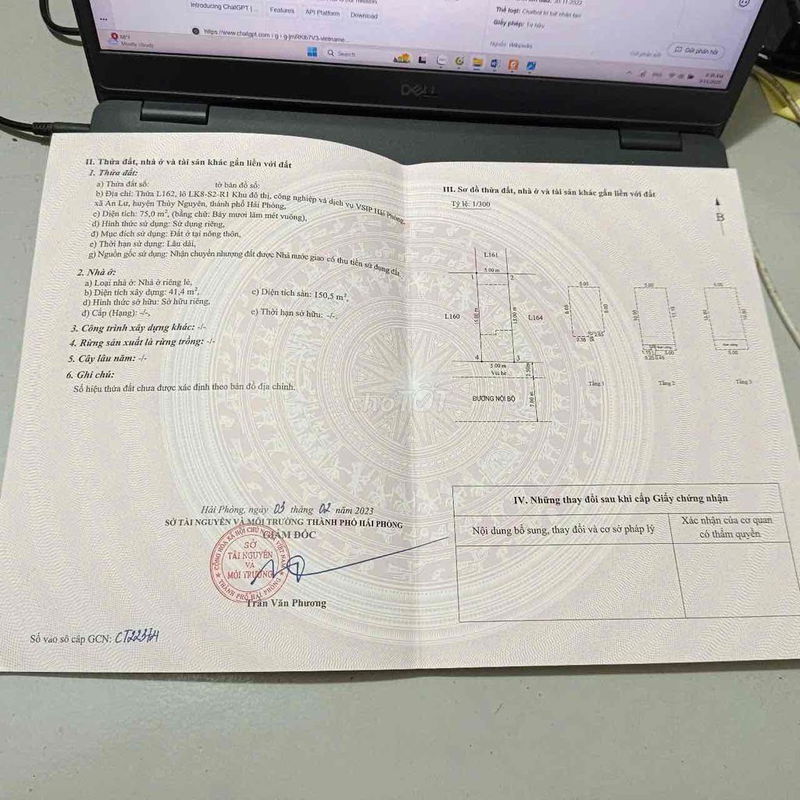 Introducing ChatGPT |
Features
API Platform
Download
Thể loại: Chatbot trí tuệ nhân tạo
Giấy phép: Tư hữu
Gửi phản hồi
Mostly cloudy
Search
DELL
II. Thửa đất, nhà ở và tài sản khác gắn liền với đất
1. Thửa đất:
a) Thửa đất số: tờ bản đồ số:
b) Địa chỉ: Thửa L162, lô LK8-S2-R1 Khu đô thị, công nghiệp và dịch vụ VSIP Hải Phòng,
xã An Lư, huyện Thủy Nguyên, thành phố Hải Phòng,
c) Diện tích: 75,0 m², (bằng chữ: Bảy mươi lăm mét vuông),
d) Hình thức sử dụng: Sử dụng riêng,
đ) Mục đích sử dụng: Đất ở tại nông thôn,
e) Thời hạn sử dụng: Lâu dài,
g) Nguồn gốc sử dụng: Nhận chuyển nhượng đất được Nhà nước giao có thu tiền sử dụng đất.
2. Nhà ở:
a) Loại nhà ở: Nhà ở riêng lẻ,
b) Diện tích xây dựng: 41,4 m², c) Diện tích sàn: 150,5 m²,
d) Hình thức sở hữu: Sở hữu riêng,
đ) Cấp (Hạng): -/-, e) Thời hạn sở hữu: -/-.
3. Công trình xây dựng khác: -/-
4. Rừng sản xuất là rừng trồng: -/-
5. Cây lâu năm: -/-
6. Ghi chú:
Số hiệu thửa đất chưa được xác định theo bản đồ địa chính.
Hải Phòng, ngày 03 tháng 02 năm 2023
SỞ TÀI NGUYÊN VÀ MÔI TRƯỜNG THÀNH PHỐ HẢI PHÒNG
GIÁM ĐỐC
SỞ
TÀI NGUYÊN
VÀ
MÔI TRƯỜNG
Trần Văn Phương
Số vào sổ cấp GCN:
III. Sơ đồ thửa đất, nhà ở và tài sản khác gắn liền với đất
Tỷ lệ: 1/300
B
L161
5.00 m
1
2
L160
15.00 m
15.00 m
L164
4
3
5.00 m
Vỉa hè
ĐƯỜNG NỘI BỘ
5.00
Tầng 1
5.00
5.00
Tầng 2
5.00
5.00
Tầng 3
choTOT
IV. Những thay đổi sau khi cấp Giấy chứng nhận
Nội dung bổ sung, thay đổi và cơ sở pháp lý
Xác nhận của cơ quan
có thẩm quyền